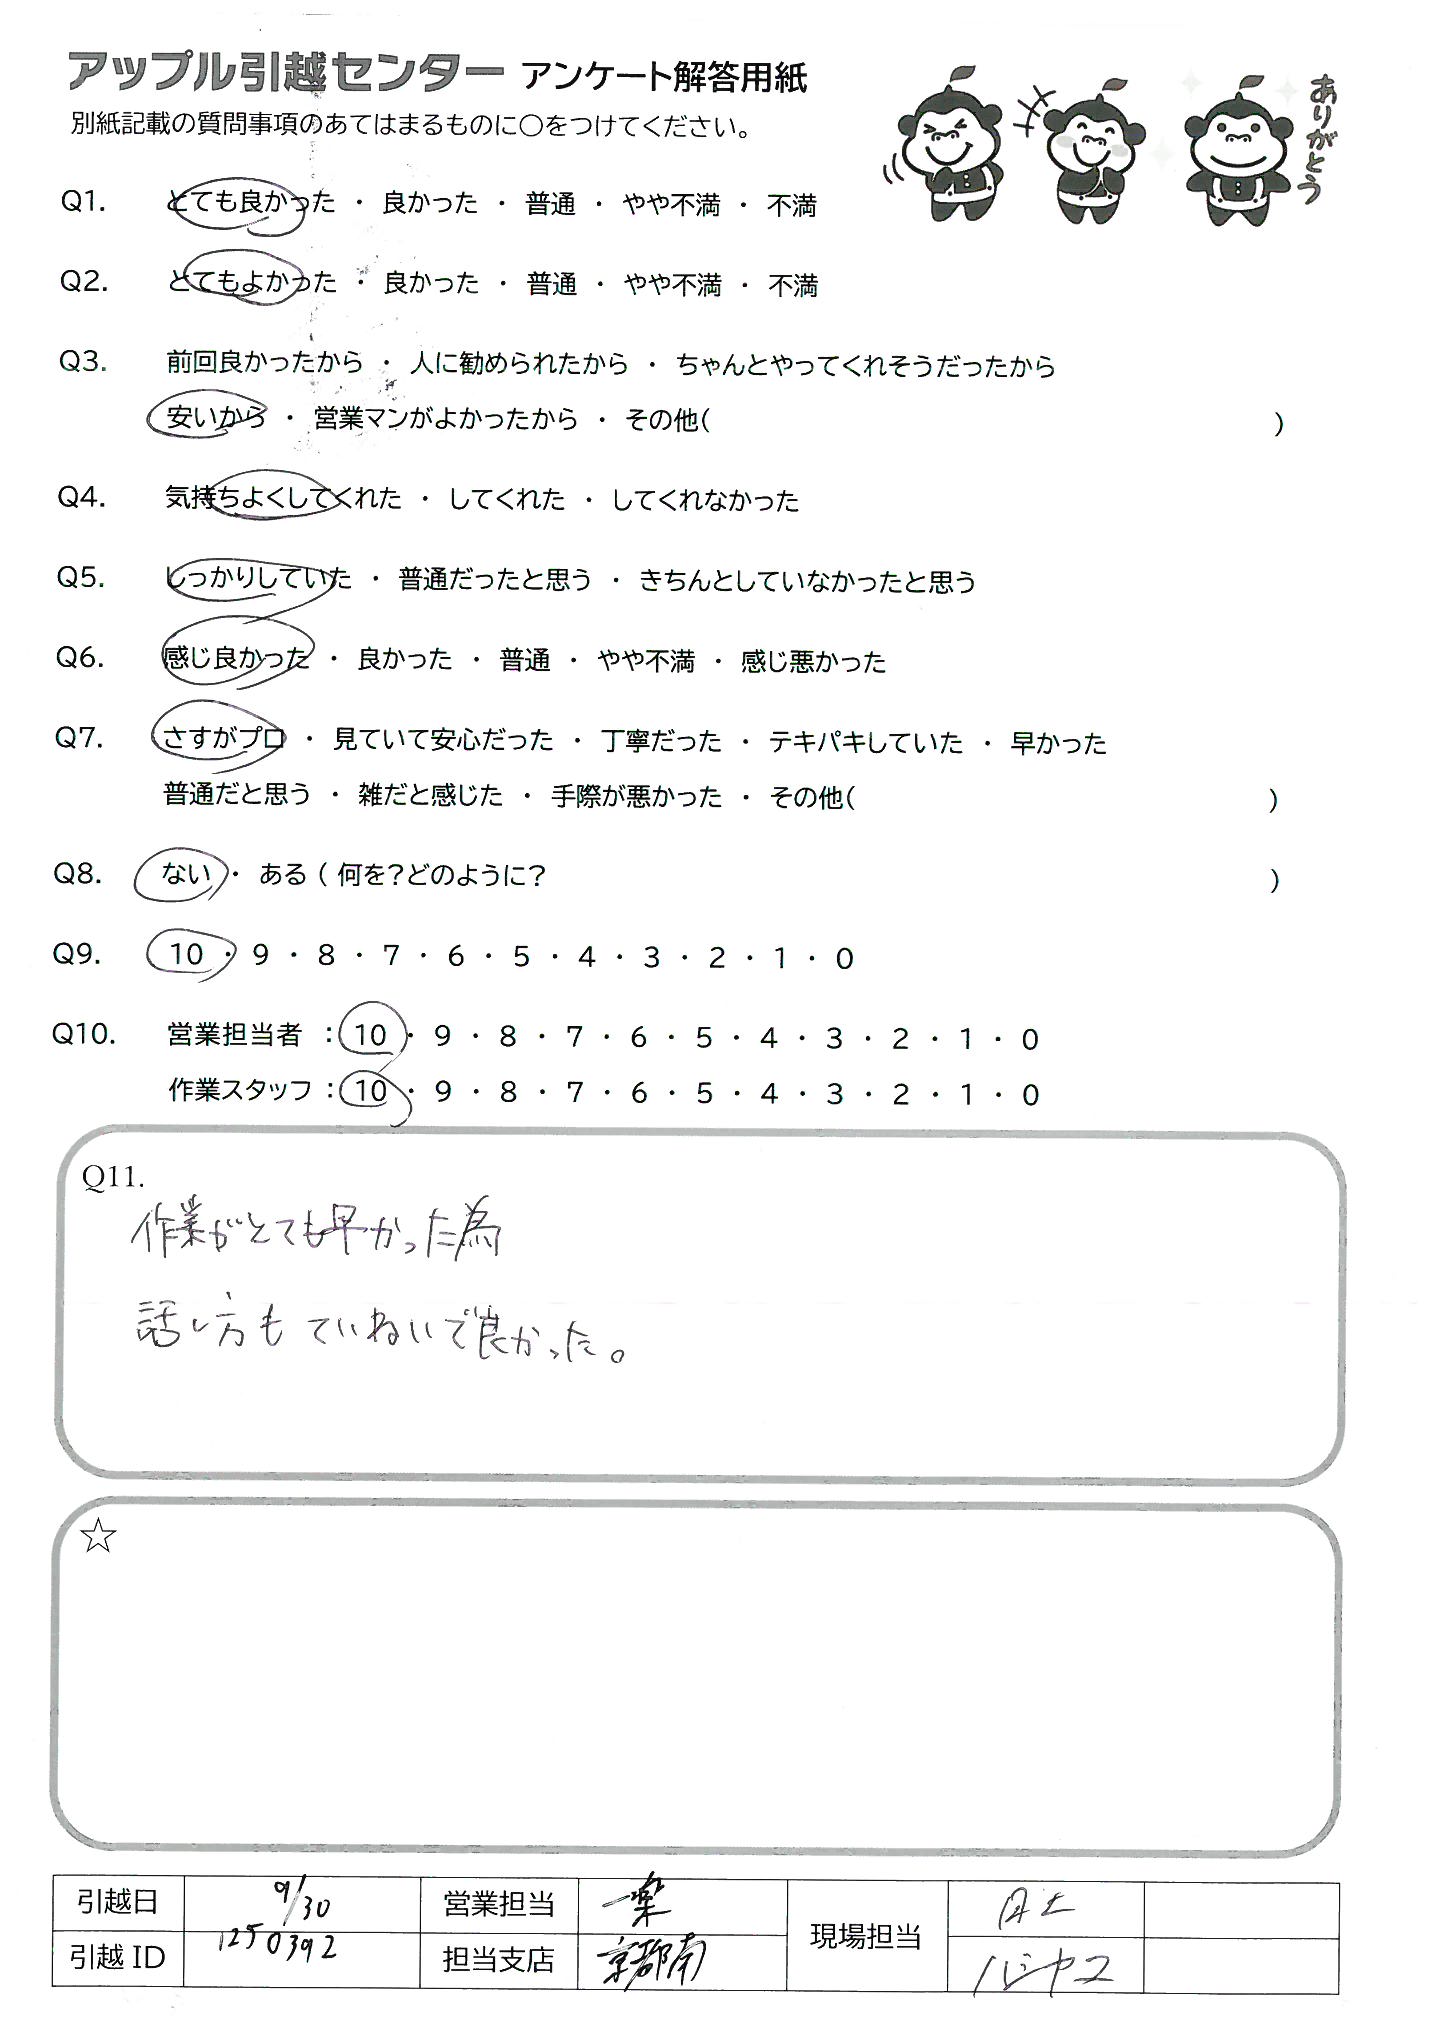 アップル引越センター アンケート解答用紙
別紙記載の質問事項のあてはまるものに○をつけてください。
ありがとう
Q1. とても良かった ・ 良かった ・ 普通 ・ やや不満 ・ 不満
Q2. とてもよかった ・ 良かった ・ 普通 ・ やや不満 ・ 不満
Q3. 前回良かったから ・ 人に勧められたから ・ ちゃんとやってくれそうだったから
安いから ・ 営業マンがよかったから ・ その他( )
Q4. 気持ちよくしてくれた ・ してくれた ・ してくれなかった
Q5. しっかりしていた ・ 普通だったと思う ・ きちんとしていなかったと思う
Q6. 感じ良かった ・ 良かった ・ 普通 ・ やや不満 ・ 感じ悪かった
Q7. さすがプロ ・ 見ていて安心だった ・ 丁寧だった ・ テキパキしていた ・ 早かった
普通だと思う ・ 雑だと感じた ・ 手際が悪かった ・ その他( )
Q8. ない ・ ある ( 何を?どのように? )
Q9. 10 ・ 9 ・ 8 ・ 7 ・ 6 ・ 5 ・ 4 ・ 3 ・ 2 ・ 1 ・ 0
Q10. 営業担当者 : 10 ・ 9 ・ 8 ・ 7 ・ 6 ・ 5 ・ 4 ・ 3 ・ 2 ・ 1 ・ 0
作業スタッフ : 10 ・ 9 ・ 8 ・ 7 ・ 6 ・ 5 ・ 4 ・ 3 ・ 2 ・ 1 ・ 0
Q11.
作業がとても早かった為
話し方もていねいで良かった。
☆
引越日 9/30 営業担当 一楽 現場担当
引越 ID 1250392 担当支店 京都南